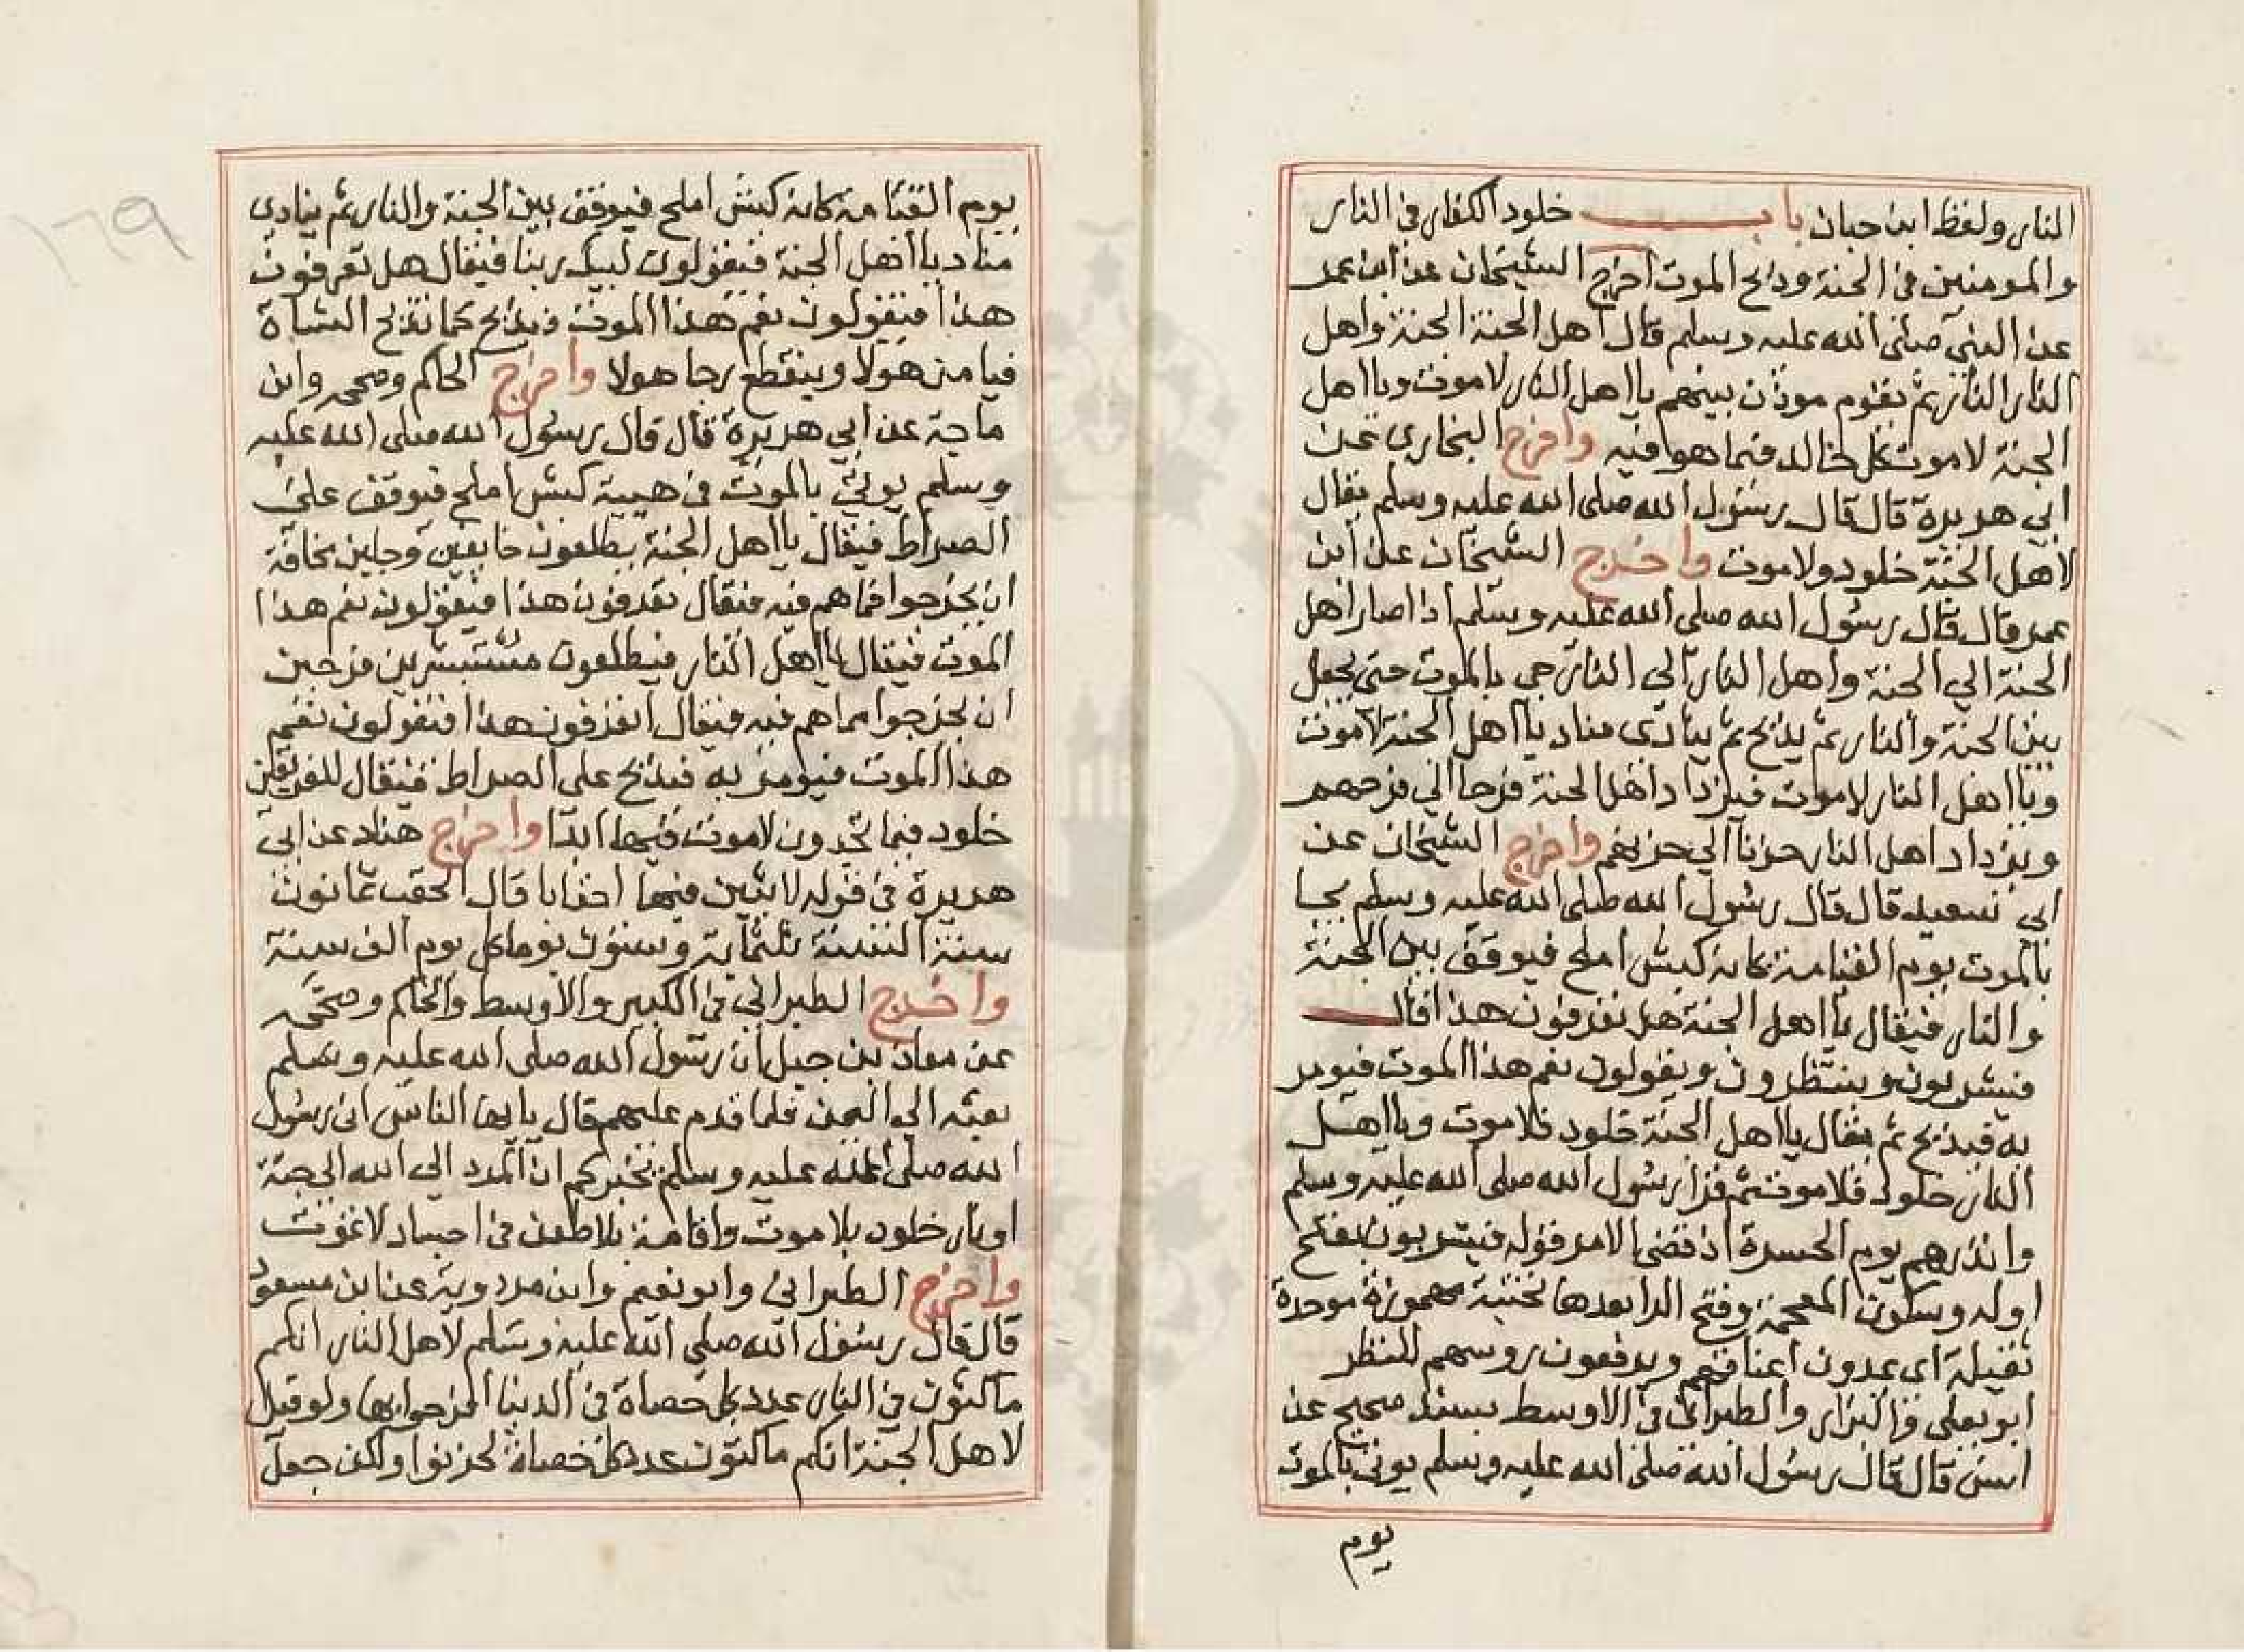 النار ولفظ ابن حبان باب خلود الكفار في النار
والمومنين في الجنة وذبح الموت اخرج الشيخان عن ابن عمر
عن النبي صلى الله عليه وسلم قال اهل الجنة الجنة واهل
النار النار ثم يقوم موذن بينهم يا اهل النار لا موت ويا اهل
الجنة لا موت كل خالد فيما هو فيه واخرج البخاري عن
ابي هريرة قال قال رسول الله صلى الله عليه وسلم يقال
لاهل الجنة خلود ولا موت واخرج الشيخان عن ابن
عمر قال قال رسول الله صلى الله عليه وسلم اذا صار اهل
الجنة الي الجنة واهل النار الي النار جي بالموت حتى يجعل
بين الجنة والنار ثم يذبح ثم ينادى مناد يا اهل الجنة لا موت
ويا اهل النار لا موت فيزداد اهل الجنة فرحا الي فرحهم
ويزداد اهل النار حزنا الي حزنهم واخرج الشيخان عن
ابي سعيد قال قال رسول الله صلى الله عليه وسلم يجا
بالموت يوم القيامة كانه كبش املح فيوقف بين الجنة
والنار فيقال يا اهل الجنة هل تعرفون هذا قال
فيشربون وينتظرون ويقولون نعم هذا الموت فيومر
به فيذبح ثم يقال يا اهل الجنة خلود فلا موت ويا اهل
النار خلود فلا موت ثم قرا رسول الله صلى الله عليه وسلم
وانذرهم يوم الحسرة اذ قضي الامر قوله فيشربون بفتح
اوله وسكون المعجمة وفتح الرا بعدها تحتية مهموزة موحدة
ثقيلة اى يمدون اعناقهم ويرفعون روسهم للنظر
ابو يعلى والبزار والطبراني في الاوسط بسند صحيح عن
انس قال قال رسول الله صلى الله عليه وسلم يوتى بالموت
يوم
يوم القيامة كانه كبش املح فيوقف بين الجنة والنار ثم ينادي
مناد يا اهل الجنة فيقولون لبيك ربنا فيقال هل تعرفون
هذا فيقولون نعم هذا الموت فيذبح كما تذبح الشاة
فيامن هولا وينقطع رجا هولا واخرج الحاكم وصححه وابن
ماجة عن ابي هريرة قال قال رسول الله صلى الله عليه
وسلم يوتي بالموت في هيية كبش املح فيوقف على
الصراط فيقال يا اهل الجنة يطلعون خايفين وجلين مخافة
ان يخرجوا مماهم فيه فيقال تعرفون هذا فيقولون نعم هذا
الموت فيقال يا اهل النار فيطلعون مستبشرين فرحين
ان يخرجوا مماهم فيه فيقال اتعرفون هذا فيقولون نعم
هذا الموت فيومر به فيذبح على الصراط فيقال للفريقين
خلود فيما تجدون لا موت فيها ابدا واخرج هناد عن ابي
هريرة في قوله لابثين فيها احقابا قال الحقب ثمانون
سنة السنة ثلثماية وستون يوما كل يوم الف سنة
واخرج الطبراني في الكبير والاوسط والحاكم وصححه
عن معاذ بن جبل ان رسول الله صلى الله عليه وسلم
بعثه الي اليمن فلما قدم عليهم قال يا ايها الناس اني رسول
الله صلى الله عليه وسلم نخبركم ان المرد الى الله الي جنة
او نار خلود بلا موت واقامة بلا ظعن في اجساد لا تموت
واخرج الطبراني وابو نعيم وابن مردويه عن ابن مسعود
قال قال رسول الله صلى الله عليه وسلم لو قيل لاهل النار انكم
ماكثون في النار عدد كل حصاة في الدنيا لفرحوا بها ولو قيل
لاهل الجنة انكم ماكثون عدد كل حصاة لحزنوا ولكن جعل
١٦٩